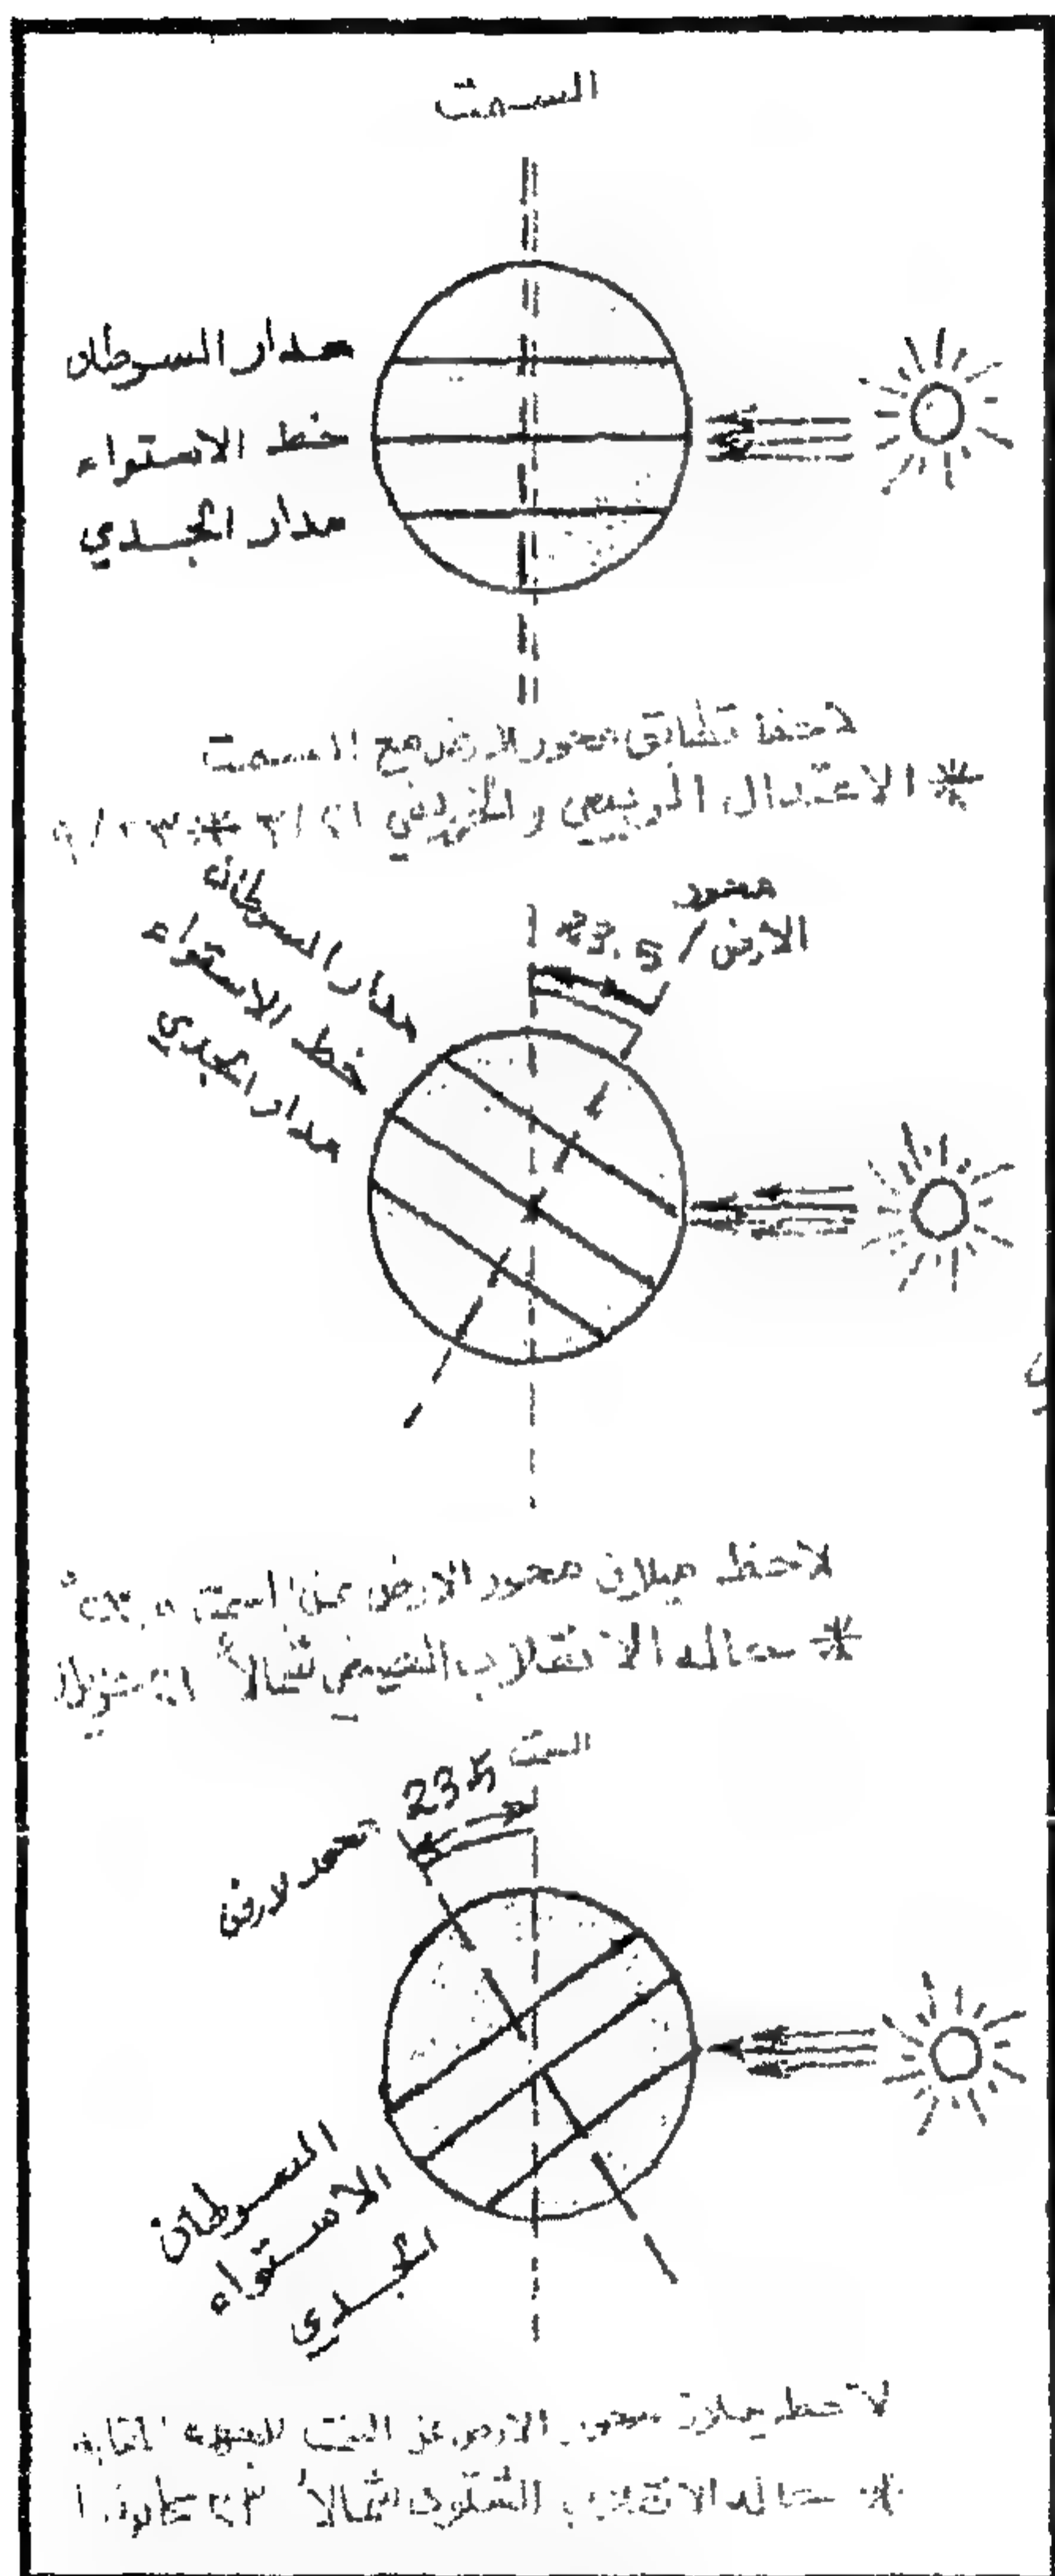 السمت
مدار السرطان
خط الاستواء
مدار الجدي
لاحظ تطابق محور الارض مع السمت
* الاعتدال الربيعي والخريفي ٣/٢١ * ٩/٢٣
محور
الارض / 23.5
مدار السرطان
خط الاستواء
مدار الجدي
لاحظ ميلان محور الارض عن السمت
* حاله الانقلاب الصيفي شمالاً ٢١
السمت
23.5
الارض
السرطان
الاستواء
الجدي
لاحظ ميلان محور الارض عن السمت للجهه
* حاله الانقلاب الشتوي شمالاً ٢٣ كانون ١